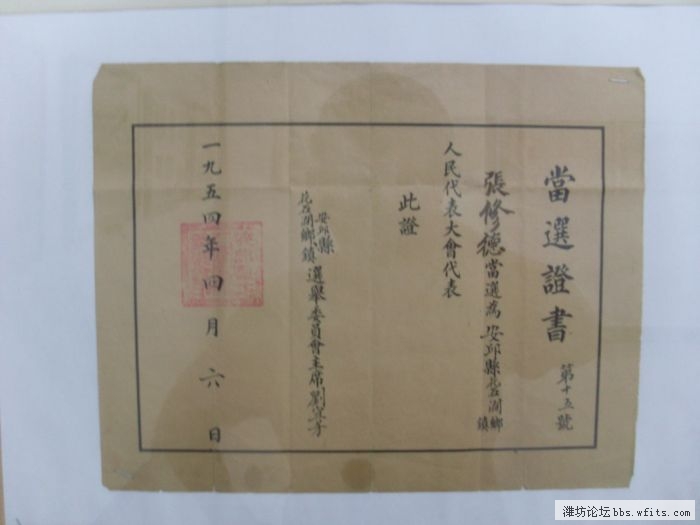 當選證書
第十五號
張修德當選為安邱縣石澗鄉鎮
人民代表大會代表
此證
安邱縣
石澗鄉鎮
選舉委員會主席劉
一九五四年四月六日
潍坊论坛:bbs.wfits.com